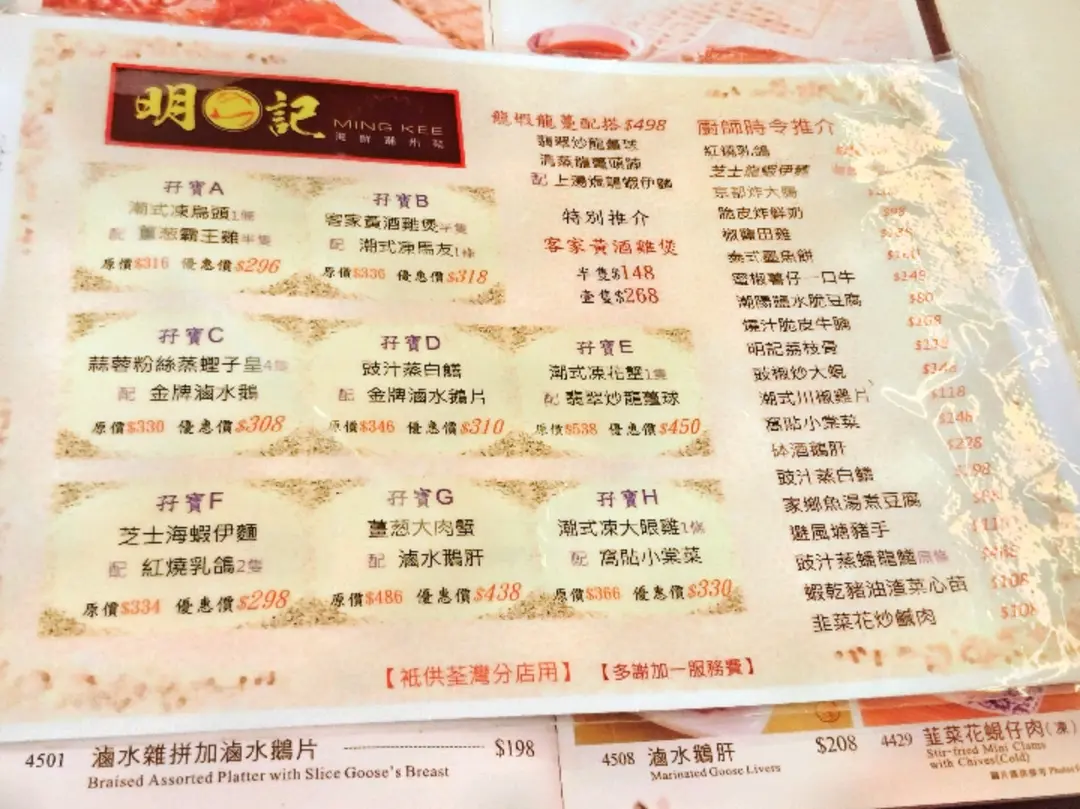 明記
MING KEE
海鮮潮州菜
孖寶A
潮式凍烏頭1條
配 薑葱霸王雞半隻
原價$316 優惠價$296
孖寶B
客家黃酒雞煲半隻
配 潮式凍馬友1條
原價$336 優惠價$318
龍蝦龍躉配搭$498
翡翠炒龍躉球
清蒸龍躉頭腩
配 上湯焗龍蝦伊麵
特別推介
客家黃酒雞煲
半隻$148
壹隻$268
孖寶C
蒜蓉粉絲蒸蟶子皇4隻
配 金牌滷水鵝
原價$330 優惠價$308
孖寶D
豉汁蒸白鱔
配 金牌滷水鵝片
原價$346 優惠價$310
孖寶E
潮式凍花蟹1隻
配 翡翠炒龍躉球
原價$538 優惠價$450
孖寶F
芝士海蝦伊麵
配 紅燒乳鴿2隻
原價$334 優惠價$298
孖寶G
薑葱大肉蟹
配 滷水鵝肝
原價$486 優惠價$438
孖寶H
潮式凍大眼雞1條
配 窩貼小棠菜
原價$366 優惠價$330
廚師時令推介
紅燒乳鴿
芝士龍蝦伊麵
京都炸大腸
脆皮炸鮮奶 $98
椒鹽田雞
泰式墨魚餅
蜜椒薯仔一口牛 $149
潮陽鹽水脆豆腐 $80
燒汁脆皮牛腩
明記荔枝骨
豉椒炒大蜆
潮式川椒雞片 $118
窩貼小棠菜
砵酒鵝肝 $228
豉汁蒸白鱔
家鄉魚湯煮豆腐
避風塘豬手
豉汁蒸蟠龍鱔原條
蝦乾豬油渣菜心苗 $108
韮菜花炒鹹肉 $108
【祇供荃灣分店用】 【多謝加一服務費】
4501 滷水雜拼加滷水鵝片 $198
Braised Assorted Platter with Slice Goose's Breast
4508 滷水鵝肝 $208
Marinated Goose Livers
4429 韮菜花蜆仔肉(凍)
Stir-fried Mini Clams
with Chives(Cold)
圖片僅供參考